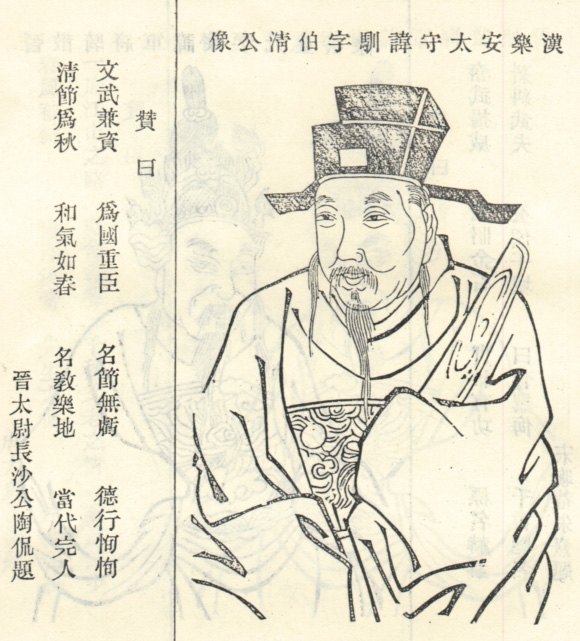 漢樂安太守諱馴字伯清公像
贊曰
文武兼資 爲國重臣 名節無虧 德行恂恂
清節爲秋 和氣如春 名教樂地 當代完人
晉太尉長沙公陶侃題